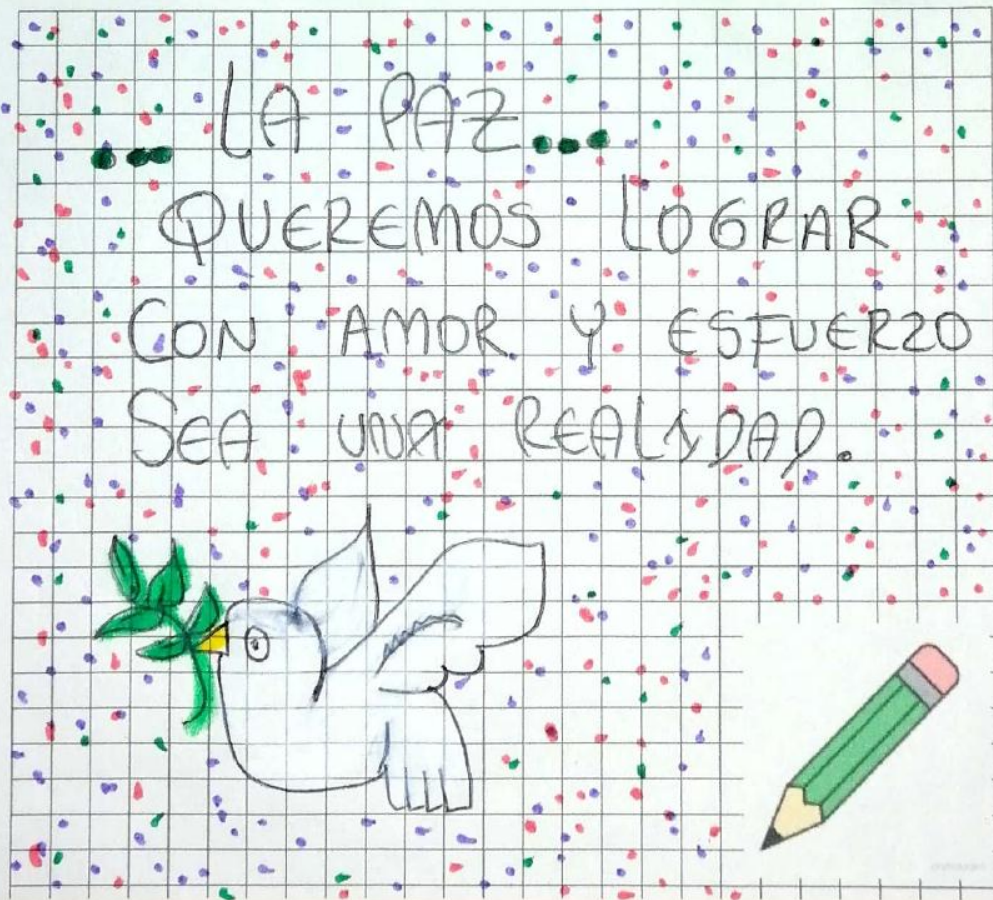 ... LA PAZ...
QUEREMOS LOGRAR
CON AMOR Y ESFUERZO
SEA UNA REALIDAD.